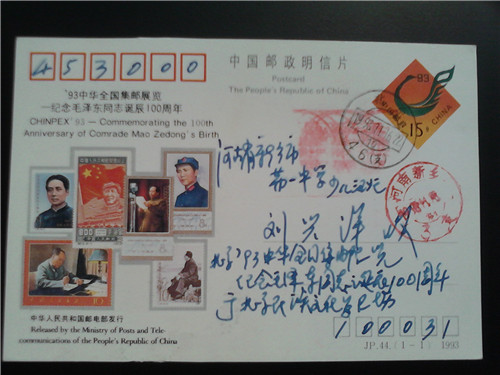 453000
中国邮政明信片
Postcard
The People's Republic of China
'93中华全国集邮展览
—纪念毛泽东同志诞辰100周年
CHINPEX '93 — Commemorating the 100th
Anniversary of Comrade Mao Zedong's Birth
93
CHINA
15分
河南新乡
河南省新乡市
第一中学
刘兴洋 收
北京'93中华全国集邮展览
纪念毛泽东同志诞辰100周年
于北京民族文化宫
800
中华人民共和国邮电部发行
Released by the Ministry of Posts and Tele-
communications of the People's Republic of China
100031
JP.44.(1-1) 1993